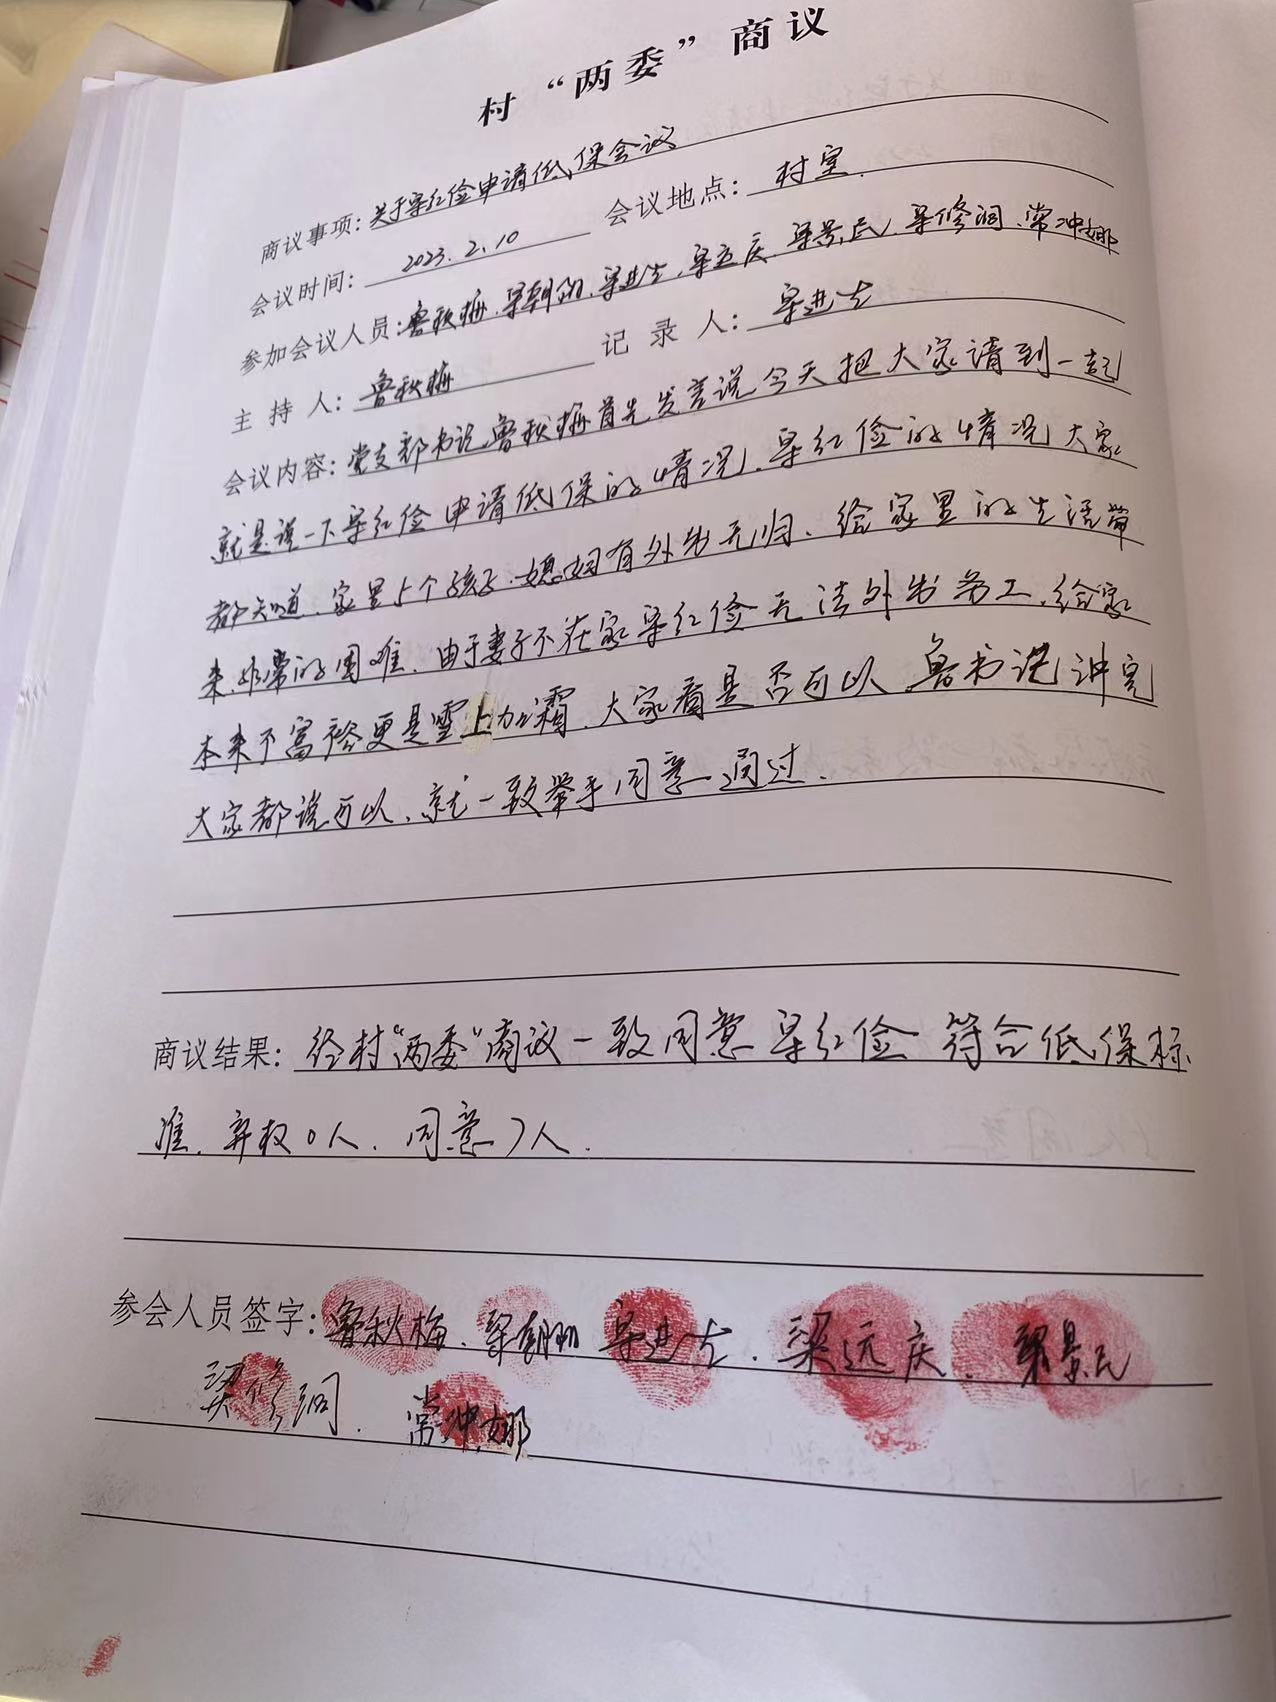 村“两委”商议
商议事项:关于梁红俭申请低保会议
会议时间: 2023.2.10 会议地点: 村室.
参加会议人员:鲁秋梅.梁朝阳.梁进生.梁远庆.梁景民.梁修润.常冲娜
主持人: 鲁秋梅 记录人: 梁进生
会议内容: 党支部书记鲁秋梅首先发言说今天把大家请到一起
就是说一下梁红俭申请低保的情况.梁红俭的情况大家
都知道.家里5个孩子.媳妇有外出无归.给家里的生活带
来.非常的困难.由于妻子不在家梁红俭无法外出务工.给家
本来不富裕更是雪上加霜.大家看是否可以.鲁书记讲完
大家都说可以.就一致举手同意通过.
商议结果: 经村“两委”商议一致同意梁红俭符合低保标
准.弃权0人.同意7人.
参会人员签字:鲁秋梅.梁朝阳 梁进生.梁远庆.梁景民
梁修润. 常冲娜